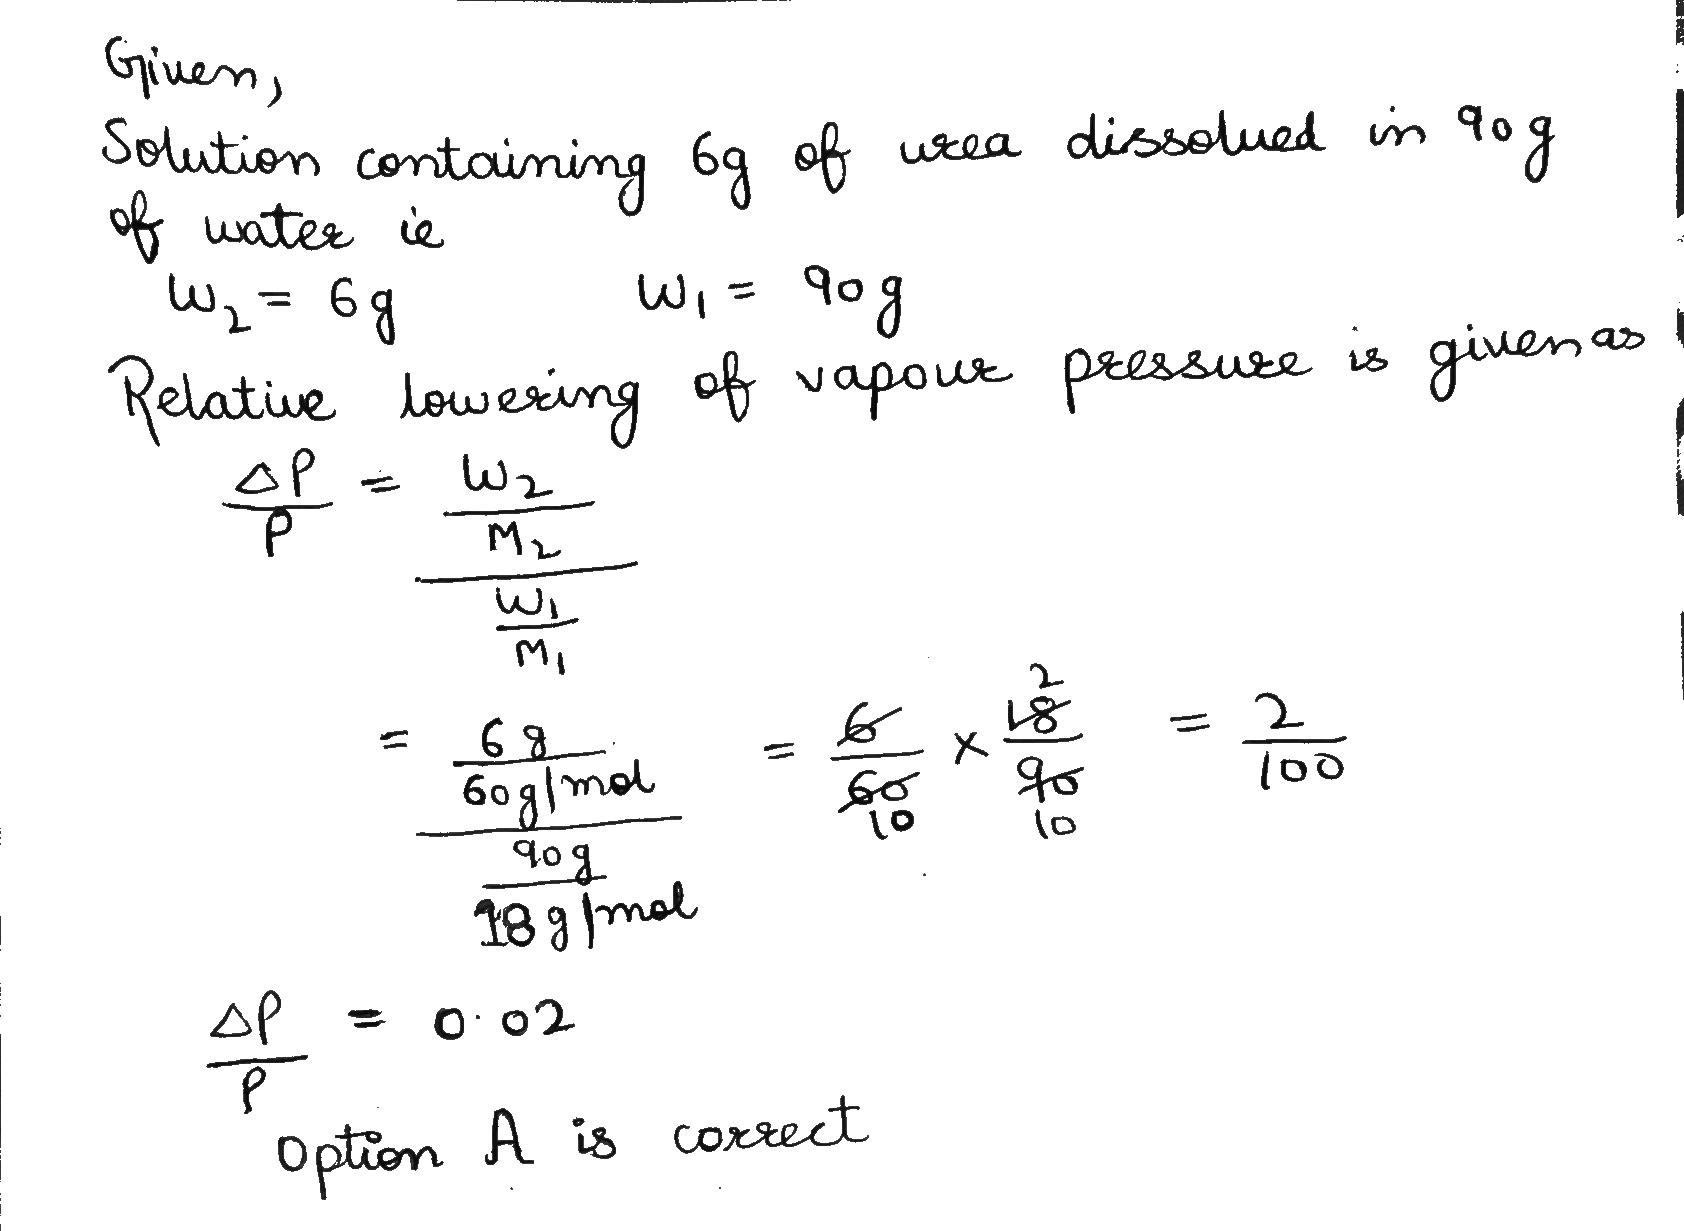 Given,
Solution containing 6g of urea dissolved in 90g
of water ie
W₂ = 6g W₁ = 90g
Relative lowering of vapour pressure is given as
ΔP/P = (W₂/M₂)/(W₁/M₁)
= (6g/60g/mol)/(90g/18g/mol) = 6/60 10 × 2 18/90 10 = 2/100
ΔP/P = 0.02
Option A is correct